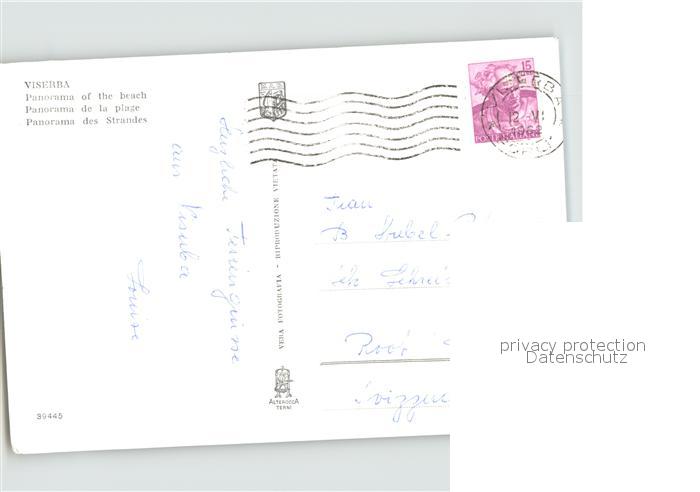 VISERBA
Panorama of the beach
Panorama de la plage
Panorama des Strandes
Herzliche Feriengrüsse
aus Viserba
Louise
VERA FOTOGRAFIA - RIPRODUZIONE VIETATA
ALTEROCCA
TERNI
39445
15
VISERBA
12-VI
Frau
B
Root
Svizzera
privacy protection
Datenschutz